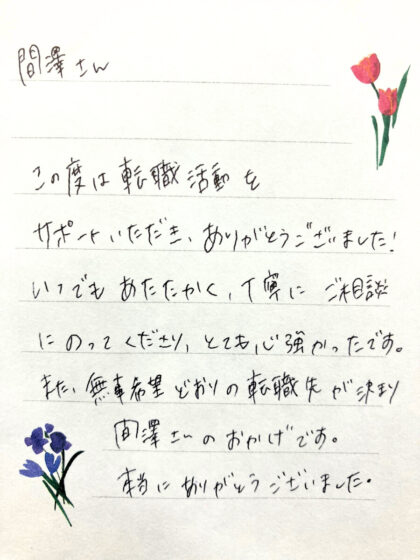 間澤さん
この度は転職活動を
サポートいただき、ありがとうございました!
いつでもあたたかく、丁寧にご相談
にのってくださり、とても心強かったです。
また、無事希望どおりの転職先が決まり
間澤さんのおかげです。
本当にありがとうございました。